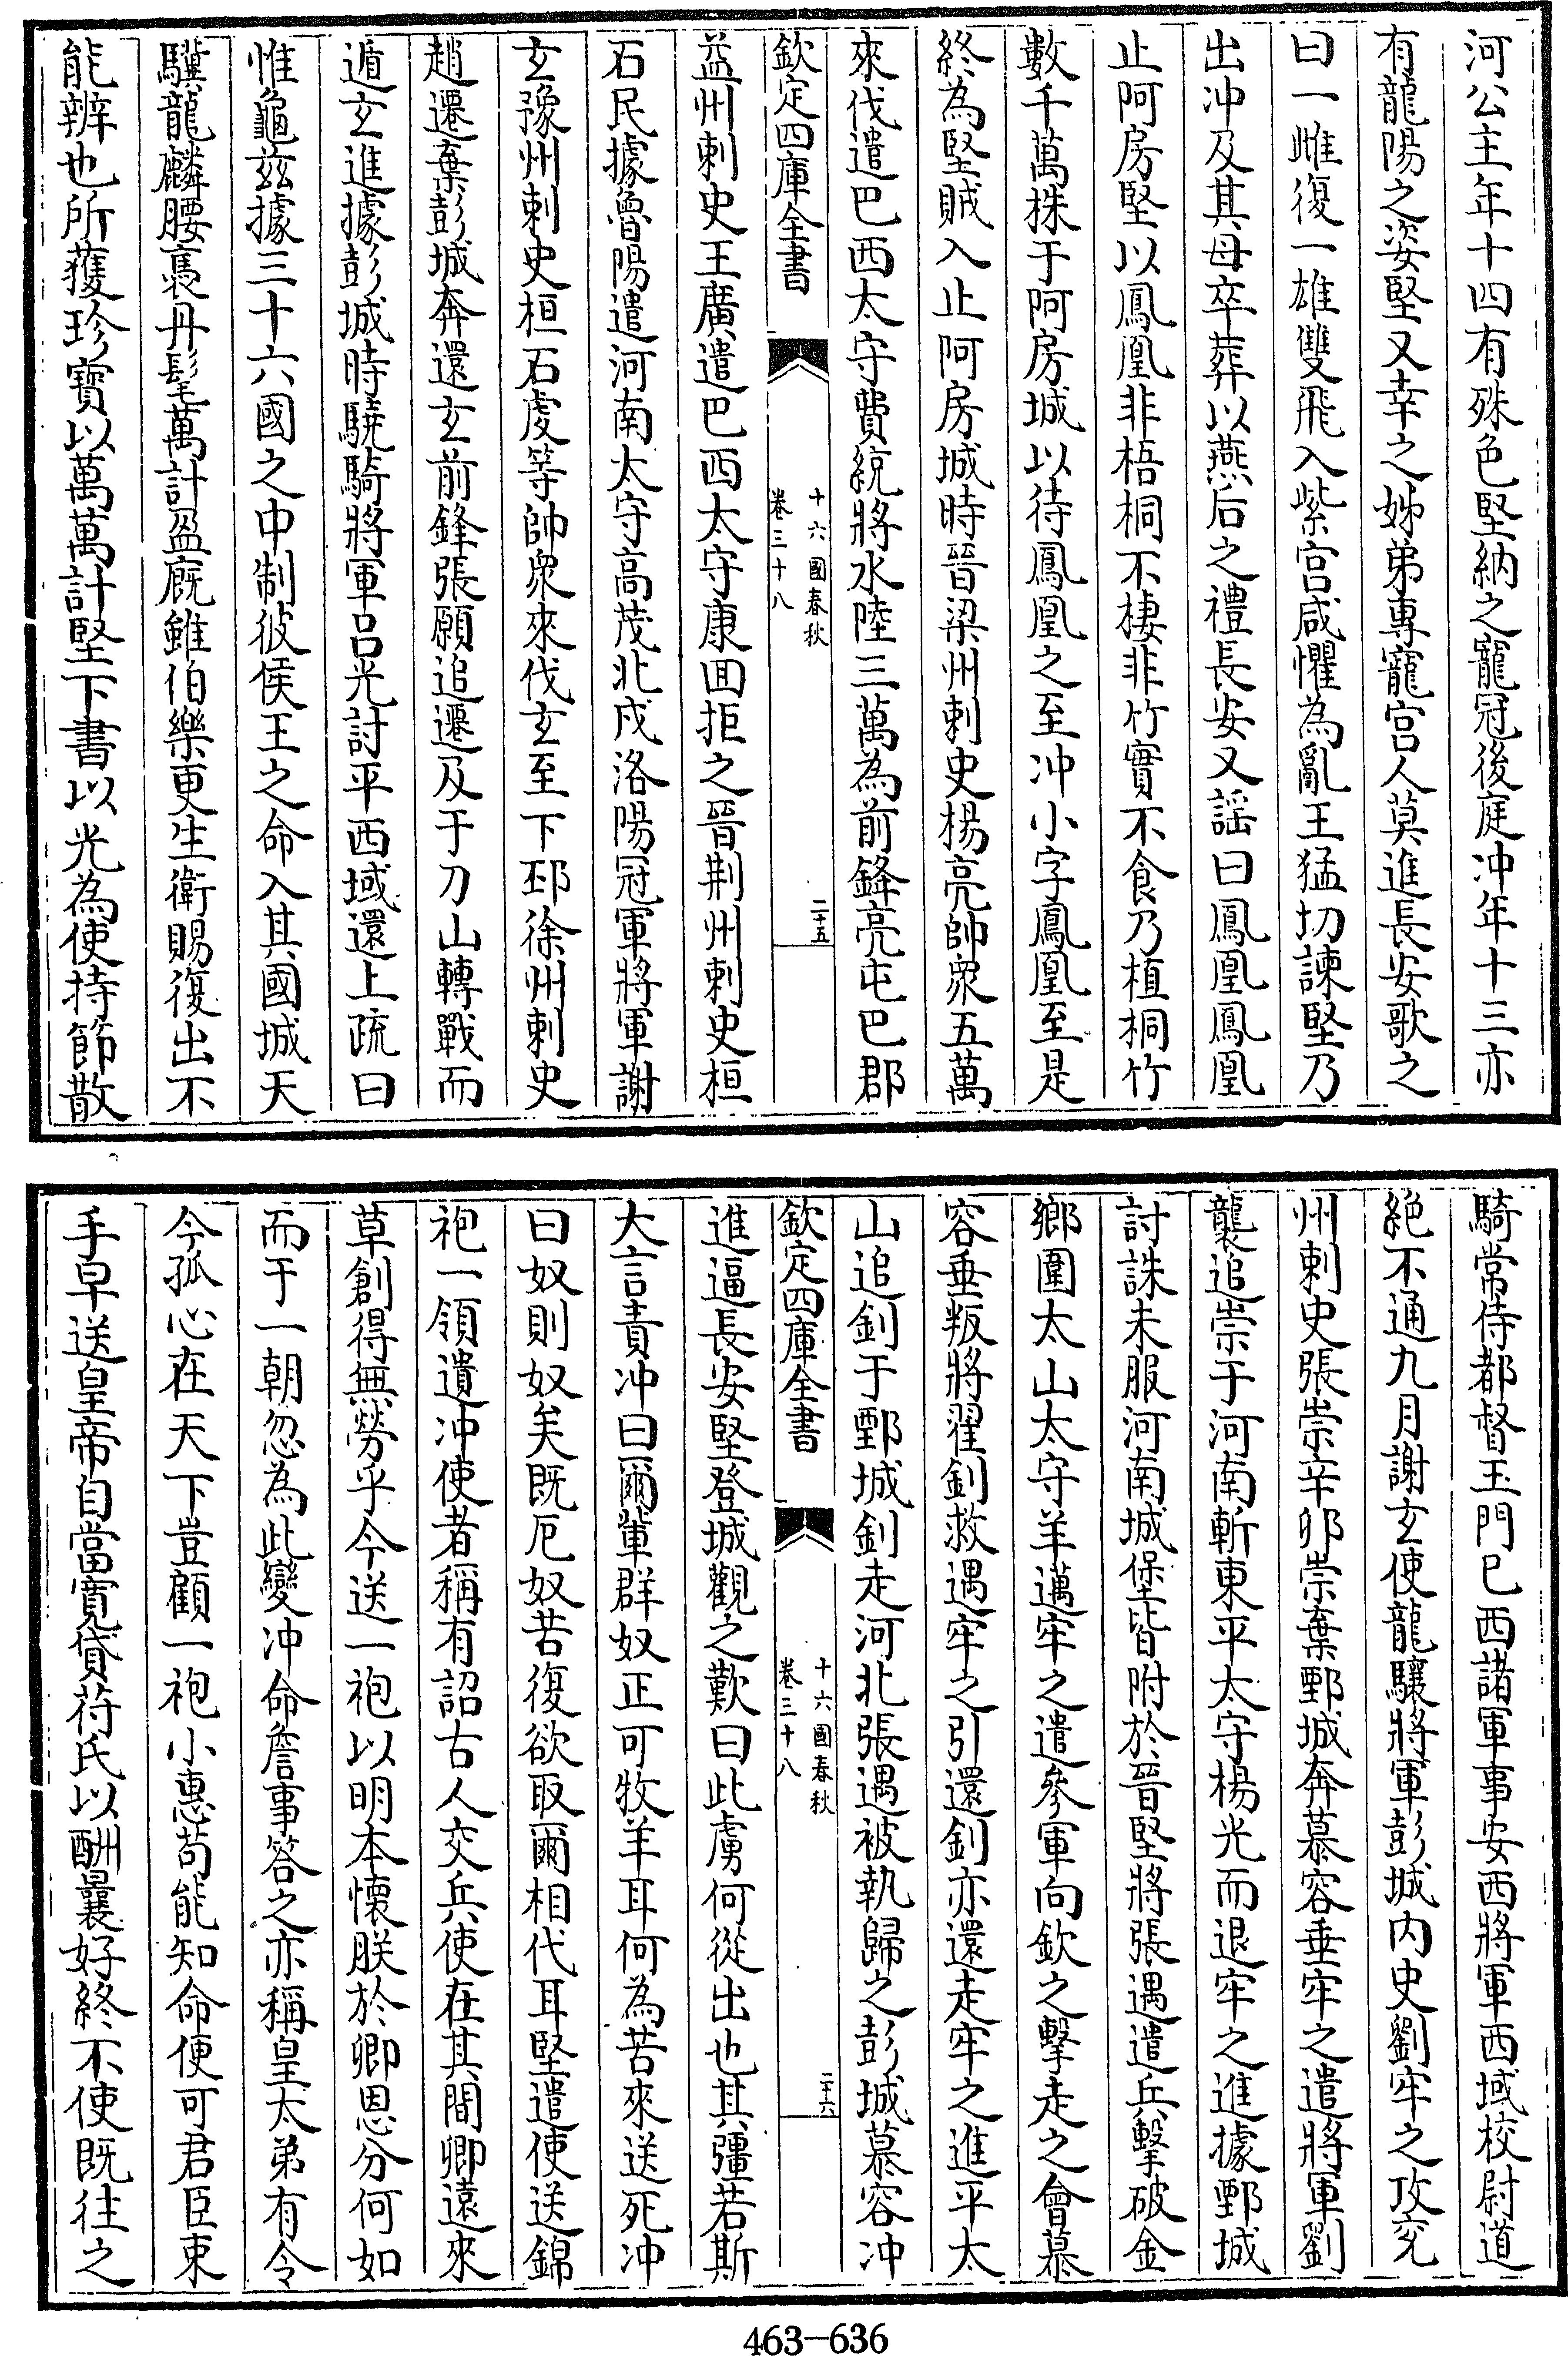 河公主年十四有殊色堅納之寵冠後庭冲年十三亦
有龍陽之姿堅又幸之姊弟專寵宫人莫進長安歌之
曰一雌復一雄雙飛入紫宫咸懼為亂王猛切諫堅乃
出冲及其母卒葬以燕后之禮長安又謡曰鳳凰鳳凰
止阿房堅以鳳凰非梧桐不棲非竹實不食乃植桐竹
數千萬株于阿房城以待鳳凰之至冲小字鳳凰至是
終為堅賊入止阿房城時晉梁州刺史楊亮帥衆五萬
來伐遣巴西太守費統將水陸三萬為前鋒亮屯巴郡
欽定四庫全書
十六國春秋
卷三十八
二十五
益州刺史王廣遣巴西太守康囬拒之晉荆州刺史桓
石民據魯陽遣河南太守高茂北戍洛陽冠軍將軍謝
玄豫州刺史桓石虔等帥衆來伐玄至下邳徐州刺史
趙遷棄彭城奔還玄前鋒張願追遷及于刀山轉戰而
遁玄進據彭城時驍騎將軍吕光討平西域還上疏曰
惟龜兹據三十六國之中制彼侯王之命入其國城天
驥龍麟腰褭丹髦萬計盈廐雖伯樂更生衛賜復出不
能辨也所獲珍寶以萬萬計堅下書以光為使持節散
騎常侍都督玉門已西諸軍事安西將軍西域校尉道
絶不通九月謝玄使龍驤將軍彭城内史劉牢之攻兖
州刺史張崇辛卯崇棄鄄城奔慕容垂牢之遣將軍劉
襲追崇于河南斬東平太守楊光而退牢之進據鄄城
討誅未服河南城堡皆附於晉堅將張遇遣兵擊破金
鄉圍太山太守羊邁牢之遣參軍向欽之擊走之會慕
容垂叛將翟釗救遇牢之引還釗亦還走牢之進平太
山追釗于鄄城釗走河北張遇被執歸之彭城慕容冲
欽定四庫全書
十六國春秋
卷三十八
二十六
進逼長安堅登城觀之歎曰此虜何從出也其彊若斯
大言責冲曰爾輩群奴正可牧羊耳何為苦來送死冲
曰奴則奴矣既厄奴苦復欲取爾相代耳堅遣使送錦
袍一領遺冲使者稱有詔古人交兵使在其間卿遠來
草創得無勞乎今送一袍以明本懷朕於卿恩分何如
而于一朝忽為此變冲命詹事答之亦稱皇太弟有令
今孤心在天下豈顧一袍小惠苟能知命便可君臣束
手早送皇帝自當寛貸苻氏以酬曩好終不使既往之
463-636